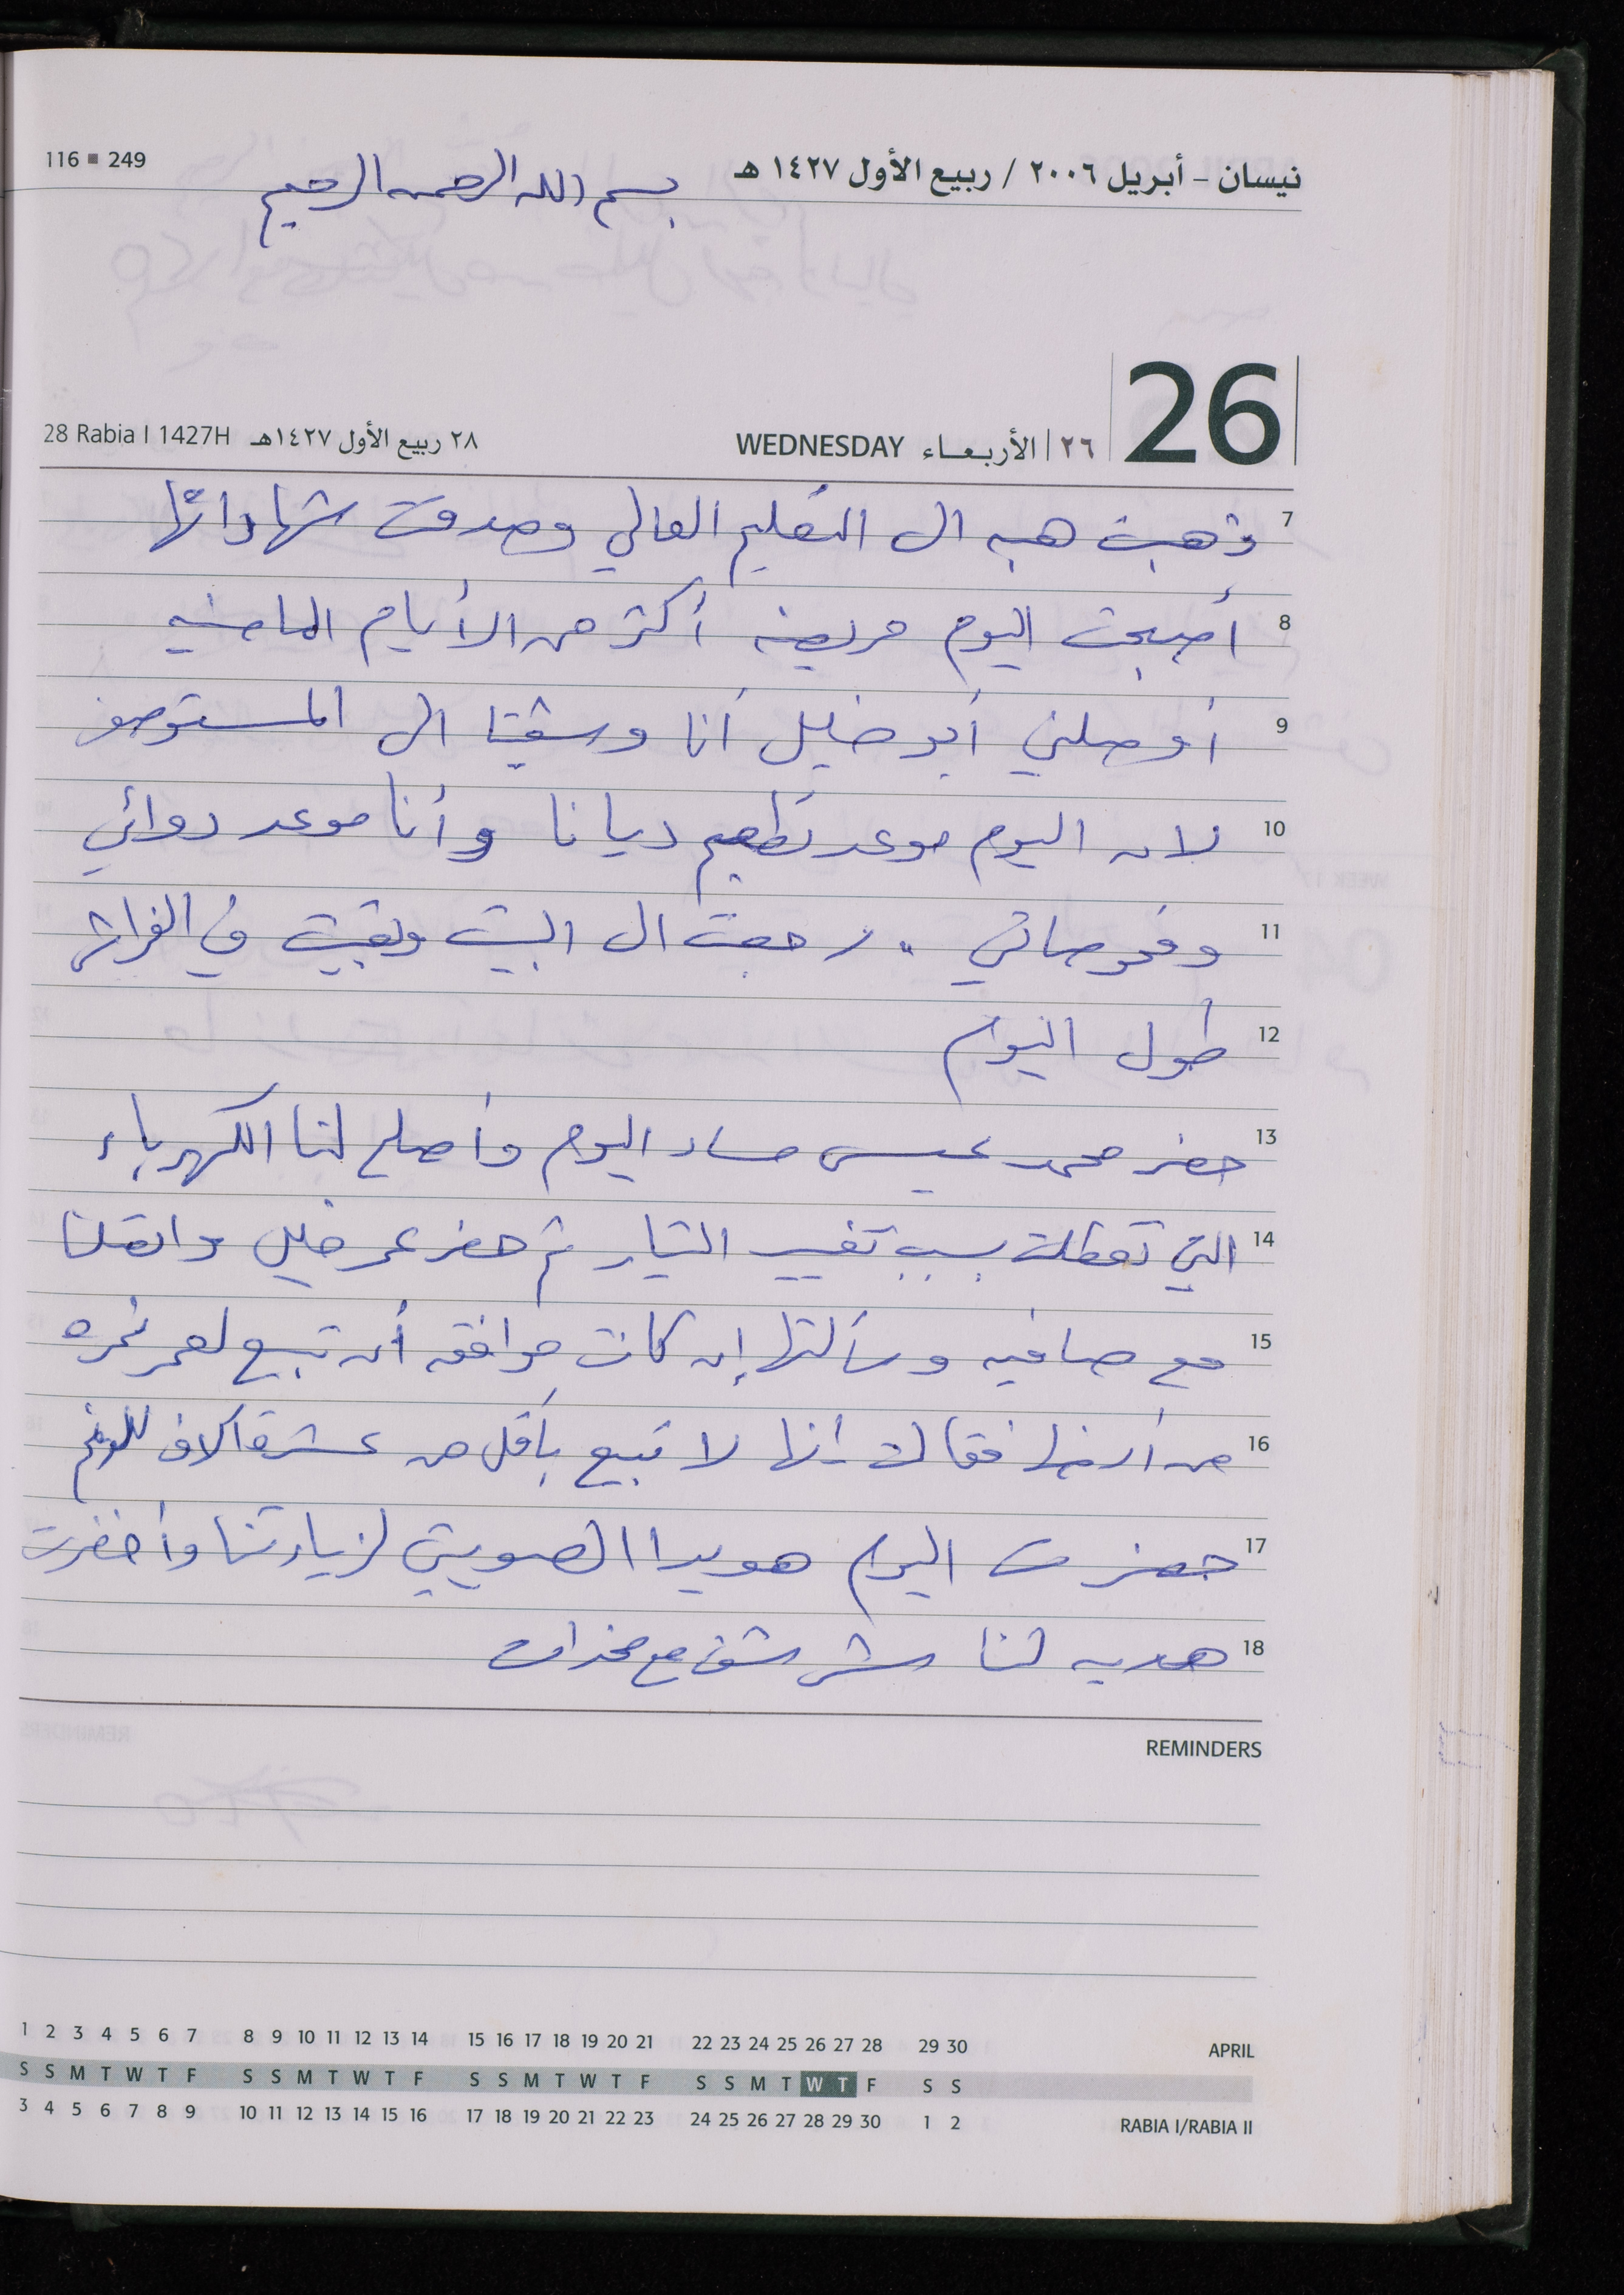 116 ■ 249
نيسان - أبريل ٢٠٠٦ / ربيع الأول ١٤٢٧ هـ
بسم الله الرحمن الرحيم
26
٢٦ | الأربعاء WEDNESDAY
٢٨ ربيع الأول ١٤٢٧هـ 28 Rabia I 1427H
7 ذهبت هبه الى التعليم العالي وصدقت شهاداتها
8 أصبحت اليوم مريضه أكثر من الأيام الماضيه
9 أوصلني أبو خليل أنا و الى المستوصف
10 لان اليوم موعد تطعيم ديانا وأنا موعد دوائي
11 وفحوصاتي . رجعت الى البيت وبقيت في الفراش
12 طول اليوم
13 حضر محمد عيسى مساء اليوم وأصلح لنا الكهرباء
14 التي تعطلت بسبب تغيير التيار ثم حضر عمر خليل واتصلنا
15 مع صافيه وسألتها إن كانت موافقه أن تبيع لعمر نمره
16 من أرضها فقالت إنها لا تبيع بأقل من عشرة الاف للدونم
17 حضرت اليوم هويدا الصويتي لزيارتنا وأحضرت
18 هديه لنا شرشف مع مخدات
REMINDERS
1 2 3 4 5 6 7 8 9 10 11 12 13 14 15 16 17 18 19 20 21 22 23 24 25 26 27 28 29 30 APRIL
S S M T W T F S S M T W T F S S M T W T F S S M T W T F S S
3 4 5 6 7 8 9 10 11 12 13 14 15 16 17 18 19 20 21 22 23 24 25 26 27 28 29 30 1 2 RABIA I/RABIA II